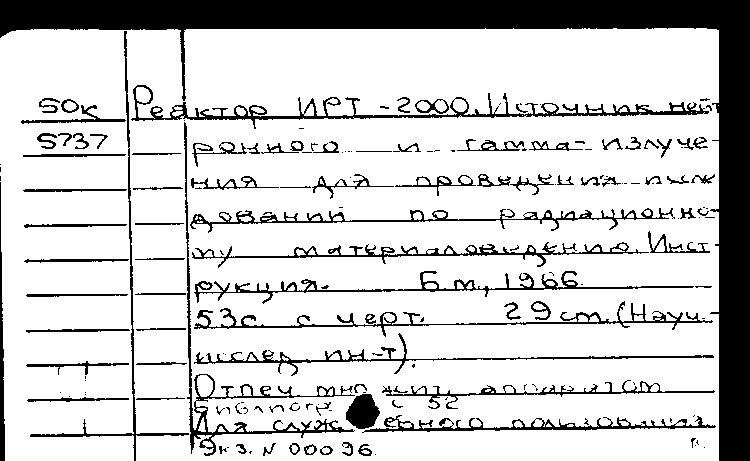 50к Реактор ИРТ-2000. Источник нейт-
5737 ронного и гамма-излуче-
ния для проведения
дований по радиационно-
му материаловедению. Инст-
рукция. Б м, 1966
53с. с черт. 29 cm. (Науч.-
исслед. ин-т).
Отпеч. множит. аппаратом
Библиогр. с 52
Для служебного пользования
Экз. N 00096